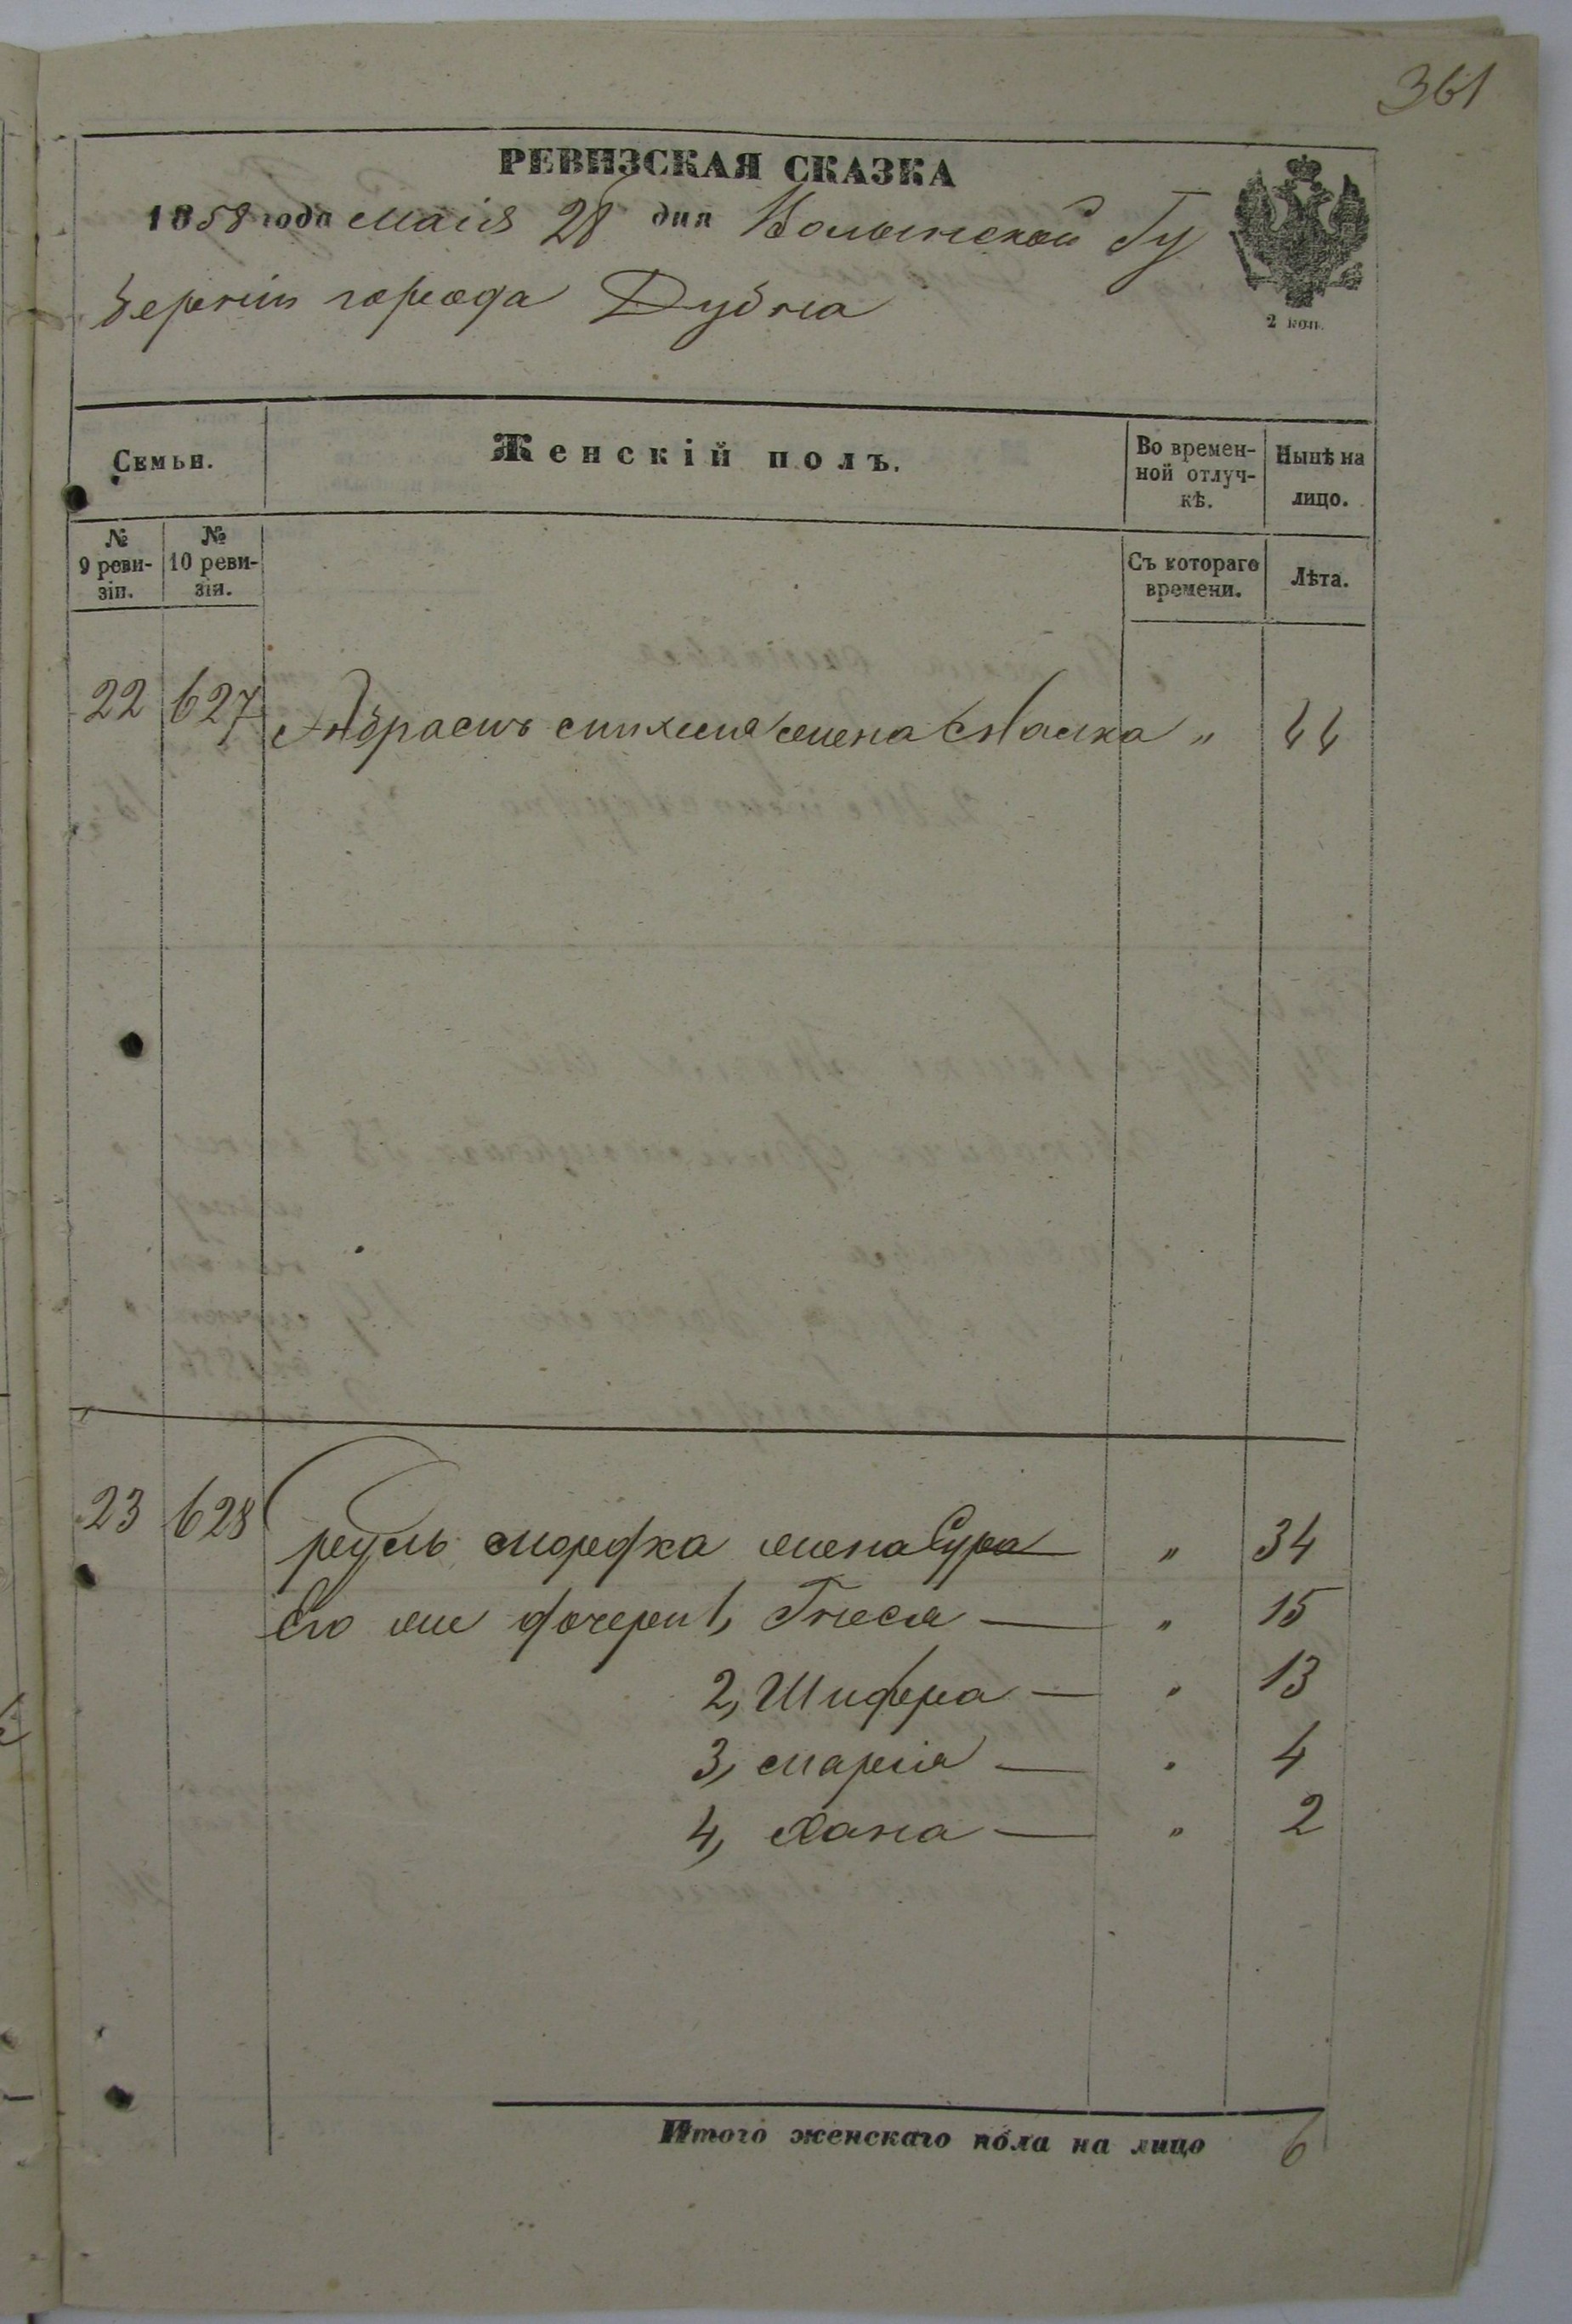 361
РЕВИЗСКАЯ СКАЗКА
1858 года маія 28 дня Волынской Гу
берніи города Дубна
2 коп.
Семьи.
Женскій полъ.
Во времен-
ной отлуч-
кѣ.
Нынѣ на
лицо.
№
9 реви-
зіи.
№
10 реви-
зіи.
Съ котораго
времени.
Лѣта.
22 627 жена Малка " 44
23 628 жена Сура " 34
Его же дочери 1, Гнеся — " 15
2, Шифра — " 13
3, — " 4
4, Хана — " 2
Итого женскаго пола на лицо 6